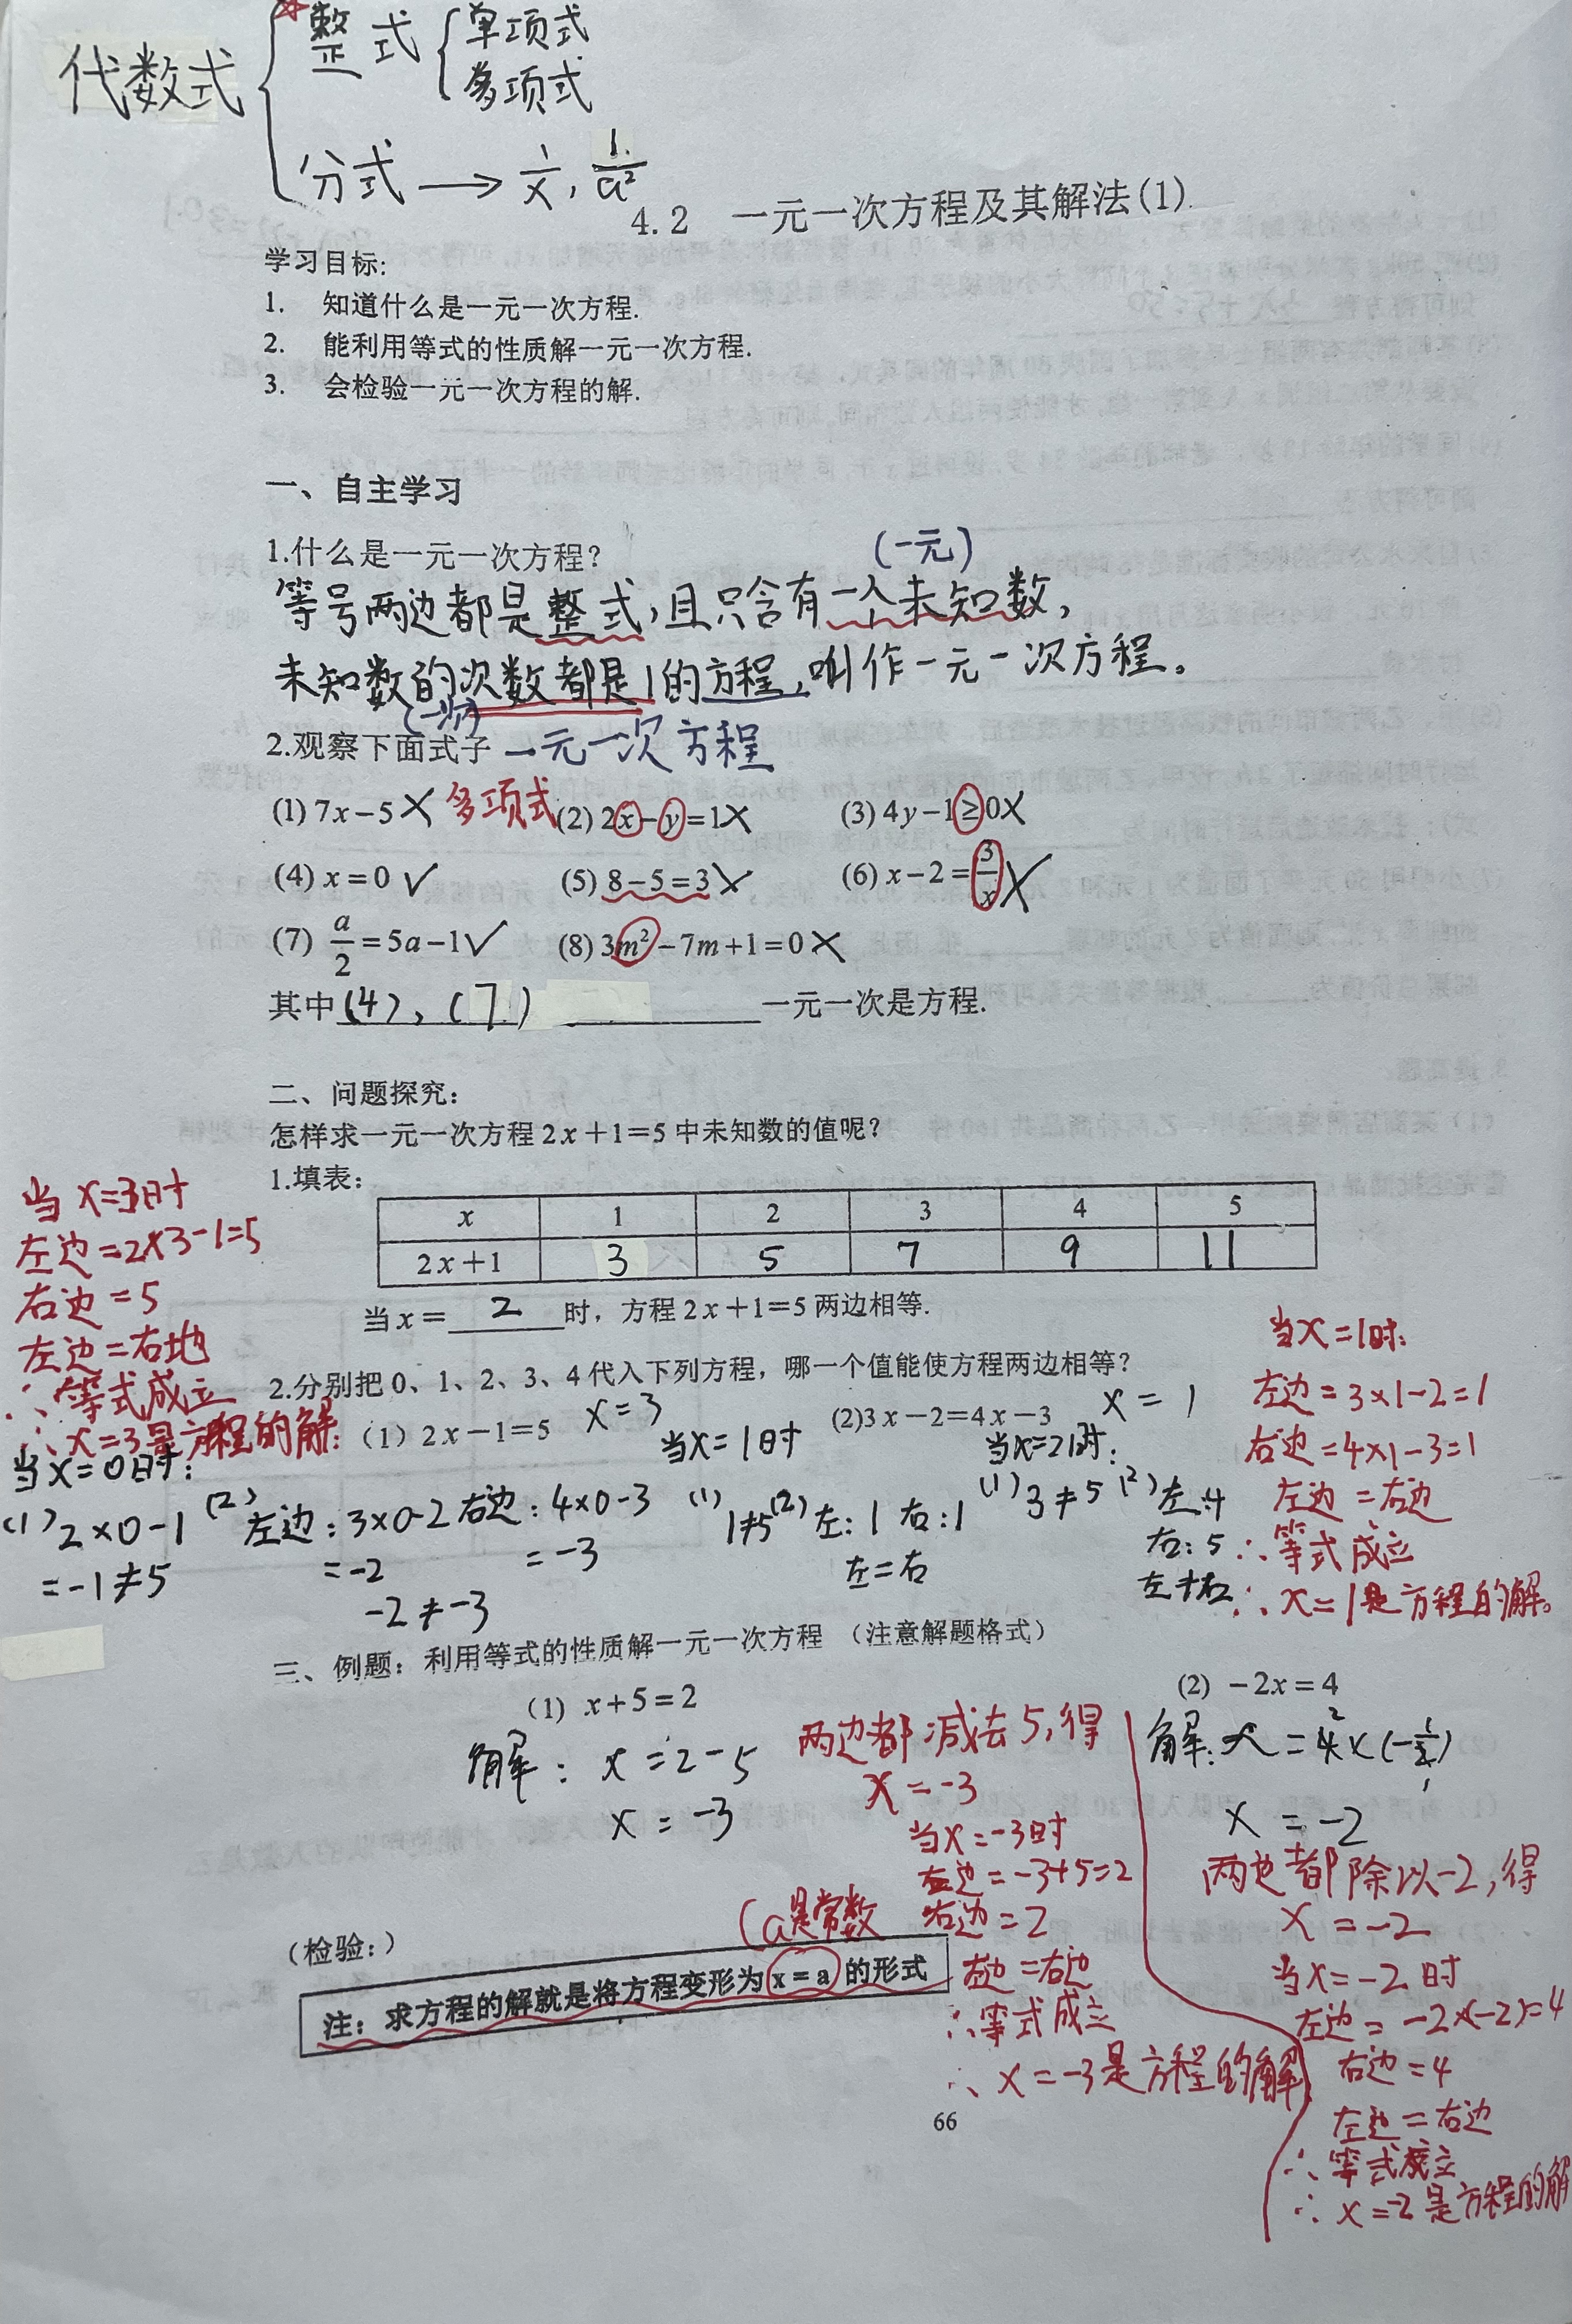 代数式
整式
单项式
多项式
分式 → 1/x , 1/a²
4.2 一元一次方程及其解法(1)
学习目标:
1. 知道什么是一元一次方程.
2. 能利用等式的性质解一元一次方程.
3. 会检验一元一次方程的解.
一、自主学习
1.什么是一元一次方程?
(一元)
等号两边都是整式,且只含有一个未知数,
未知数的次数都是1的方程,叫作一元一次方程。
(一次)
2.观察下面式子 一元一次方程
(1) 7x−5 ✗ 多项式 (2) 2x−y=1 ✗ (3) 4y−1≥0 ✗
(4) x=0 ✓ (5) 8−5=3 ✗ (6) x−2=3/x ✗
(7) a/2=5a−1 ✓ (8) 3m²−7m+1=0 ✗
其中(4),(7) 一元一次是方程.
二、问题探究:
怎样求一元一次方程2x+1=5中未知数的值呢?
1.填表:
x 1 2 3 4 5
2x+1 3 5 7 9 11
当x= 2 时，方程2x+1=5两边相等.
2.分别把0、1、2、3、4代入下列方程，哪一个值能使方程两边相等?
(1) 2x−1=5 x=3 (2)3x−2=4x−3 x=1
当x=3时
左边=2×3-1=5
右边=5
左边=右边
∴等式成立
∴x=3是方程的解
当x=0时:
(1) 2×0-1
=-1≠5
(2) 左边:3×0-2 右边:4×0-3
=-2 =-3
-2≠-3
当x=1时
(1) 1≠5 (2) 左:1 右:1
左=右
当x=2时:
(1) 3≠5 (2) 左:4
右:5
左≠右
当x=1时:
左边=3×1-2=1
右边=4×1-3=1
左边=右边
∴等式成立
∴x=1是方程的解。
三、例题：利用等式的性质解一元一次方程 (注意解题格式)
(1) x+5=2
解: x=2-5
x=-3
两边都减去5,得
x=-3
当x=-3时
左边=-3+5=2
右边=2
左边=右边
∴等式成立
∴x=-3是方程的解
(2) −2x=4
解:x=4×(-1/2)
x=-2
两边都除以-2,得
x=-2
当x=-2时
左边=-2×(-2)=4
右边=4
左边=右边
∴等式成立
∴x=-2是方程的解
(检验:)
(a是常数
注：求方程的解就是将方程变形为x=a的形式
66